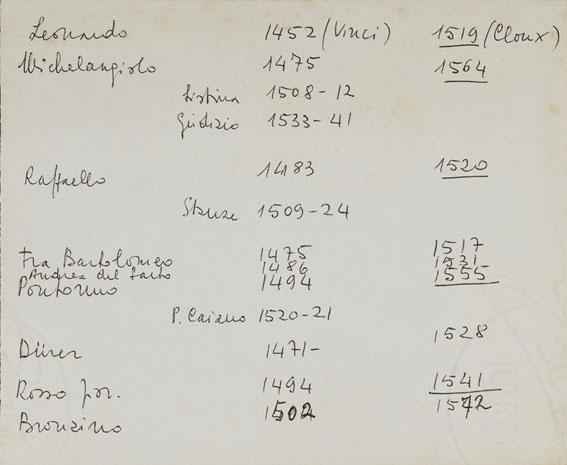 Leonardo 1452 (Vinci) 1519 (Cloux)
Michelangiolo 1475 1564
Sistina 1508-12
Giudizio 1533-41
Raffaello 1483 1520
Stanze 1509-24
Fra Bartolomeo 1475 1517
Andrea del Sarto 1486 1531
Pontormo 1494 1555
P. Caiano 1520-21
Dürer 1471- 1528
Rosso fior. 1494 1541
Bronzino 1502 1572